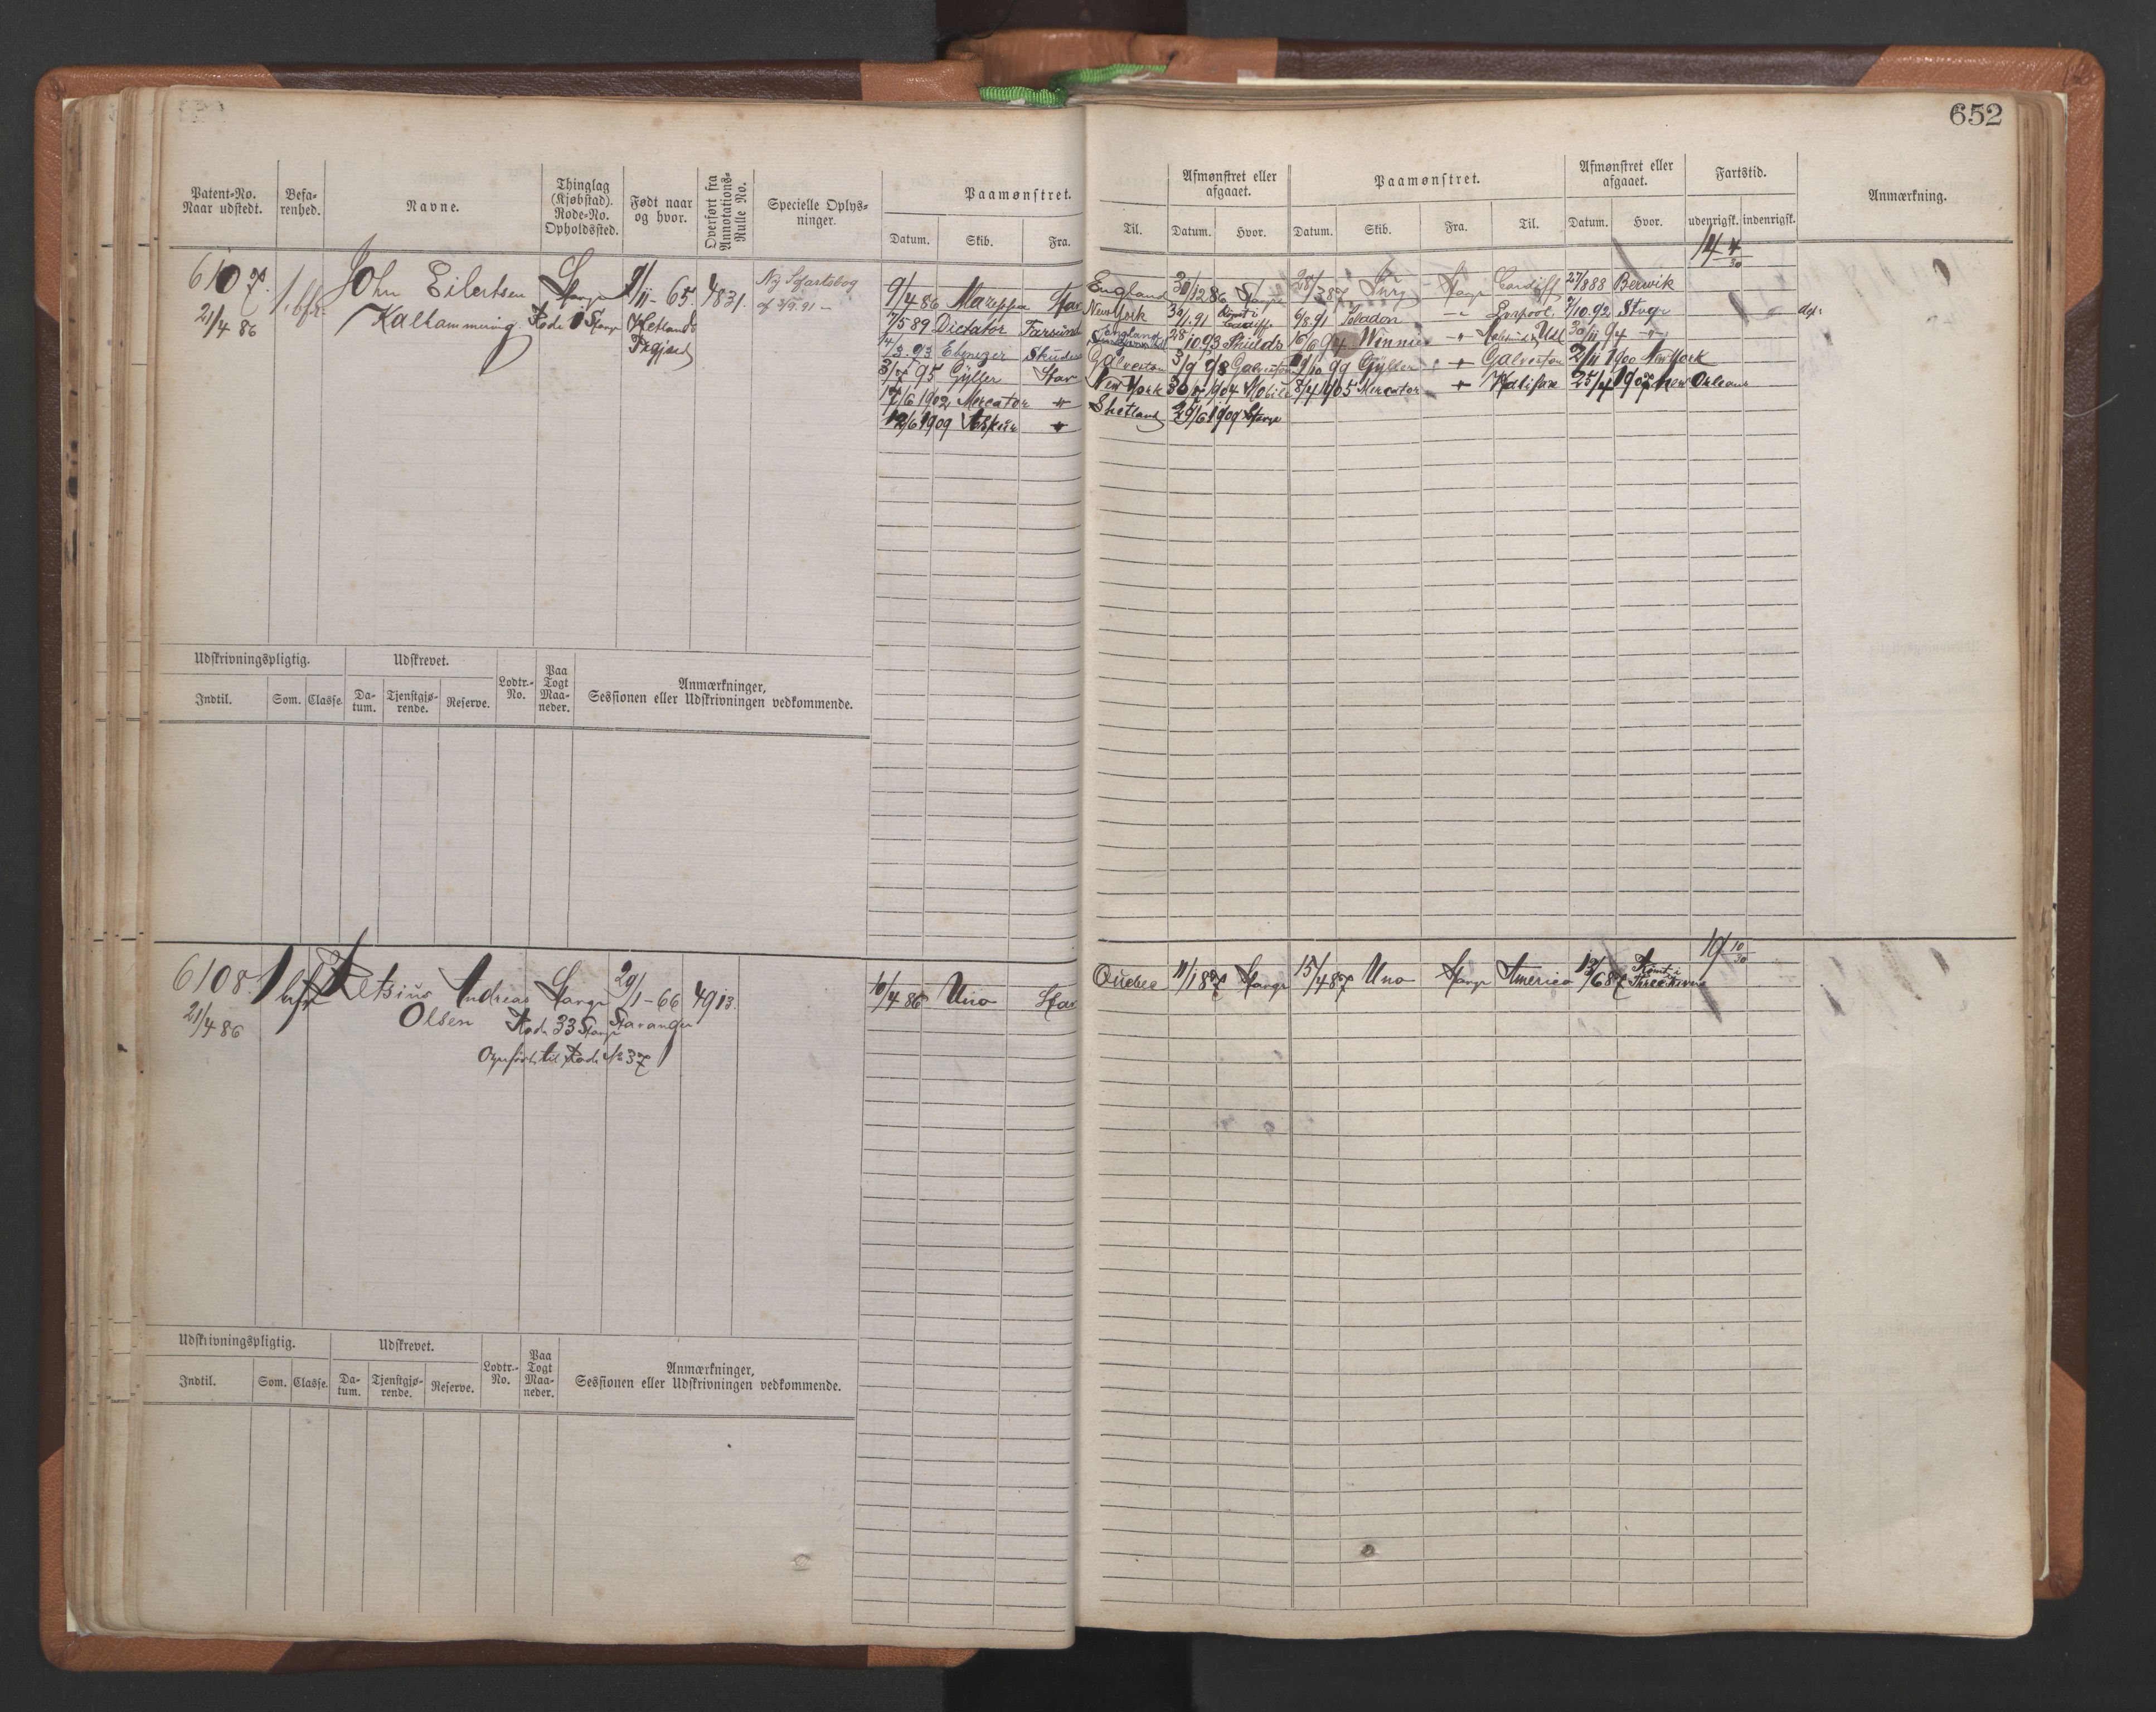 652
Patent-No. Naar udstedt.
Befarenhed.
Navne.
Thinglag (Kjøbstad). Rode-No. Opholdssted.
Født naar og hvor.
Overført fra Annotations-Rulle No.
Specielle Oplysninger.
Paamønstret.
Datum. Skib. Fra. Til.
Afmønstret eller afgaaet.
Datum. Hvor.
Paamønstret.
Datum. Skib. Fra. Til.
Afmønstret eller afgaaet.
Datum. Hvor.
Fartstid.
udenrigsk. indenrigsk.
Anmærkning.
6107.
21/4 86
1. bfr.
John Eilertsen
Stavgr
Rode 1 Stavgr
/11-65.
Hetland
4831.
Ny Søfartsbog
af 3/9.91
14 4/30
9/4 86 Stav England 30/12 86 Stavgr 28/3 87 Stavgr Cardiff 27/8 88 Berwik
7/5 89 Dictator Farsund New York 30/1.91 6/8.91 Liverpool 7/10.92 Stvgr
/3.93 Ebenezer Skudes England 28/10 93 Shields 94 Winnie 30/11 94
3/7 95 Gyller Stav Galveston 3/9 98 Galveston 99 Gyller Galveston 2/11 1900 New York
17/6 1902 Mercator New York 30/ 1904 Mobile 8/4 1905 Mercator Halifax 25/4 1907 New Orleans
12/6 1909 Shetland 29/6 1909 Stavgr
Udskrivningspligtig. Udskrevet.
Indtil. Som. Classe. Datum. Tjenstgjørende. Reserve.
Lodtr.-No.
Paa Togt Maaneder.
Anmærkninger,
Sessionen eller Udskrivningen vedkommende.
6108.
21/4 86
1 bfr
Andreas
Olsen
Stavgr
Rode 33 Stavgr
Opført til Rode No 37
29/1-66
Stavanger
4913.
19 10/30
10/4 86 Uno Stav Quebec 11/1 87 Stavgr 15/4 87 Uno Stavgr America 13/6 87 Rømt i Three Rivers
Udskrivningspligtig. Udskrevet.
Indtil. Som. Classe. Datum. Tjenstgjørende. Reserve.
Lodtr.-No.
Paa Togt Maaneder.
Anmærkninger,
Sessionen eller Udskrivningen vedkommende.